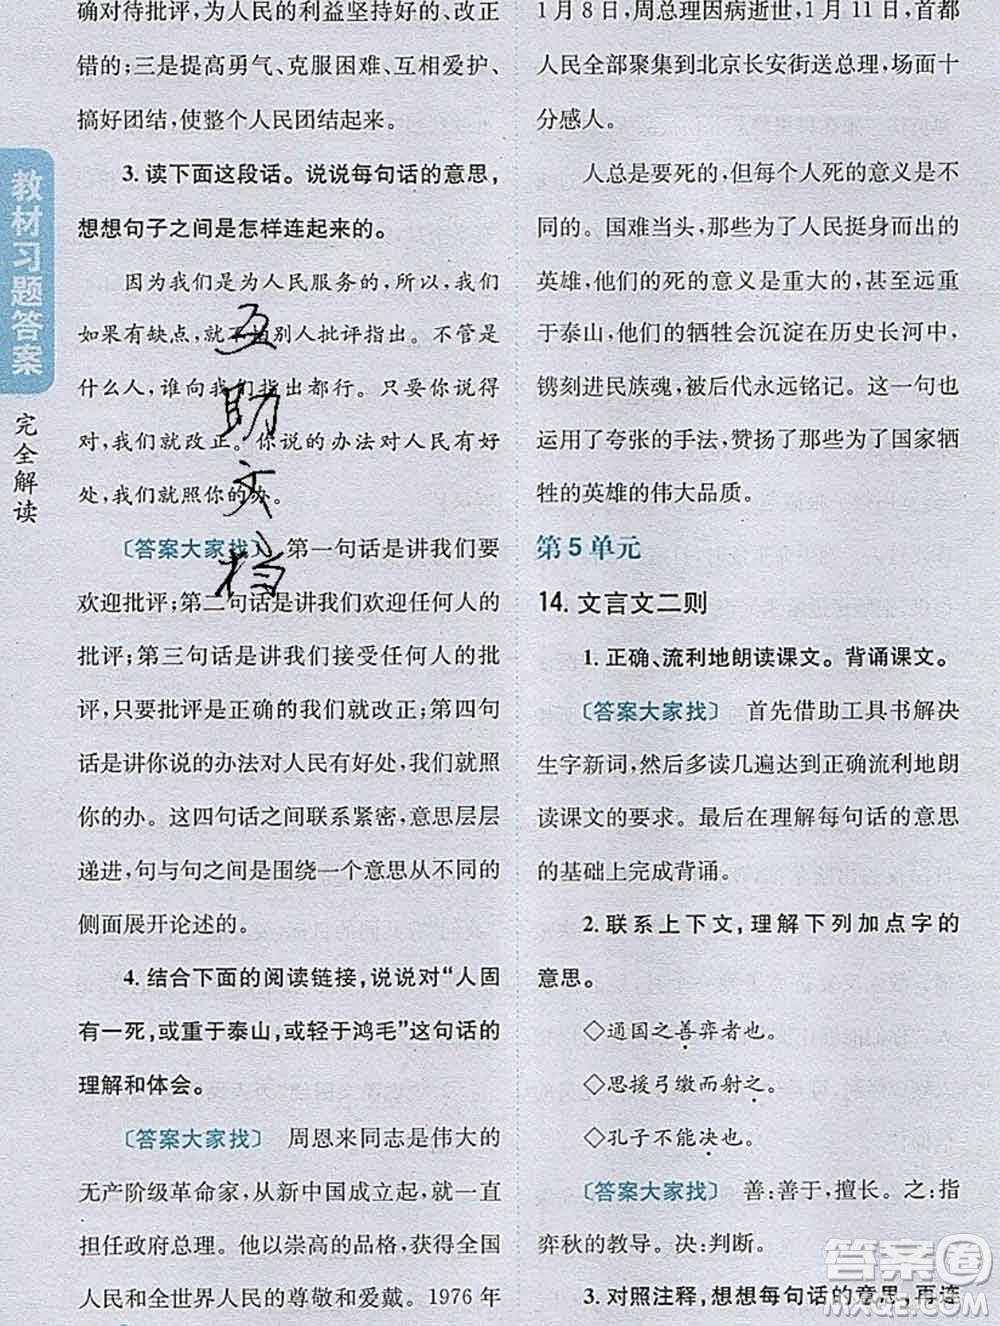 教材习题答案
完全解读
确对待批评,为人民的利益坚持好的、改正
错的;三是提高勇气、克服困难、互相爱护、
搞好团结,使整个人民团结起来。
3. 读下面这段话。说说每句话的意思,
想想句子之间是怎样连起来的。
因为我们是为人民服务的,所以,我们
如果有缺点,就不怕别人批评指出。不管是
什么人,谁向我们指出都行。只要你说得
对,我们就改正。你说的办法对人民有好
处,我们就照你的办。
〔答案大家找〕 第一句话是讲我们要
欢迎批评;第二句话是讲我们欢迎任何人的
批评;第三句话是讲我们接受任何人的批
评,只要批评是正确的我们就改正;第四句
话是讲你说的办法对人民有好处,我们就照
你的办。这四句话之间联系紧密,意思层层
递进,句与句之间是围绕一个意思从不同的
侧面展开论述的。
4. 结合下面的阅读链接,说说对“人固
有一死,或重于泰山,或轻于鸿毛”这句话的
理解和体会。
〔答案大家找〕 周恩来同志是伟大的
无产阶级革命家,从新中国成立起,就一直
担任政府总理。他以崇高的品格,获得全国
人民和全世界人民的尊敬和爱戴。1976 年
1 月 8 日,周总理因病逝世,1 月 11 日,首都
人民全部聚集到北京长安街送总理,场面十
分感人。
人总是要死的,但每个人死的意义是不
同的。国难当头,那些为了人民挺身而出的
英雄,他们的死的意义是重大的,甚至远重
于泰山,他们的牺牲会沉淀在历史长河中,
镌刻进民族魂,被后代永远铭记。这一句也
运用了夸张的手法,赞扬了那些为了国家牺
牲的英雄的伟大品质。
第 5 单元
14. 文言文二则
1. 正确、流利地朗读课文。背诵课文。
〔答案大家找〕 首先借助工具书解决
生字新词,然后多读几遍达到正确流利地朗
读课文的要求。最后在理解每句话的意思
的基础上完成背诵。
2. 联系上下文,理解下列加点字的
意思。
◇通国之善弈者也。
◇思援弓缴而射之。
◇孔子不能决也。
〔答案大家找〕 善:善于,擅长。之:指
弈秋的教导。决:判断。
3. 对照注释,想想每句话的意思,再连
互助文档
答案圈
MXQE.COM